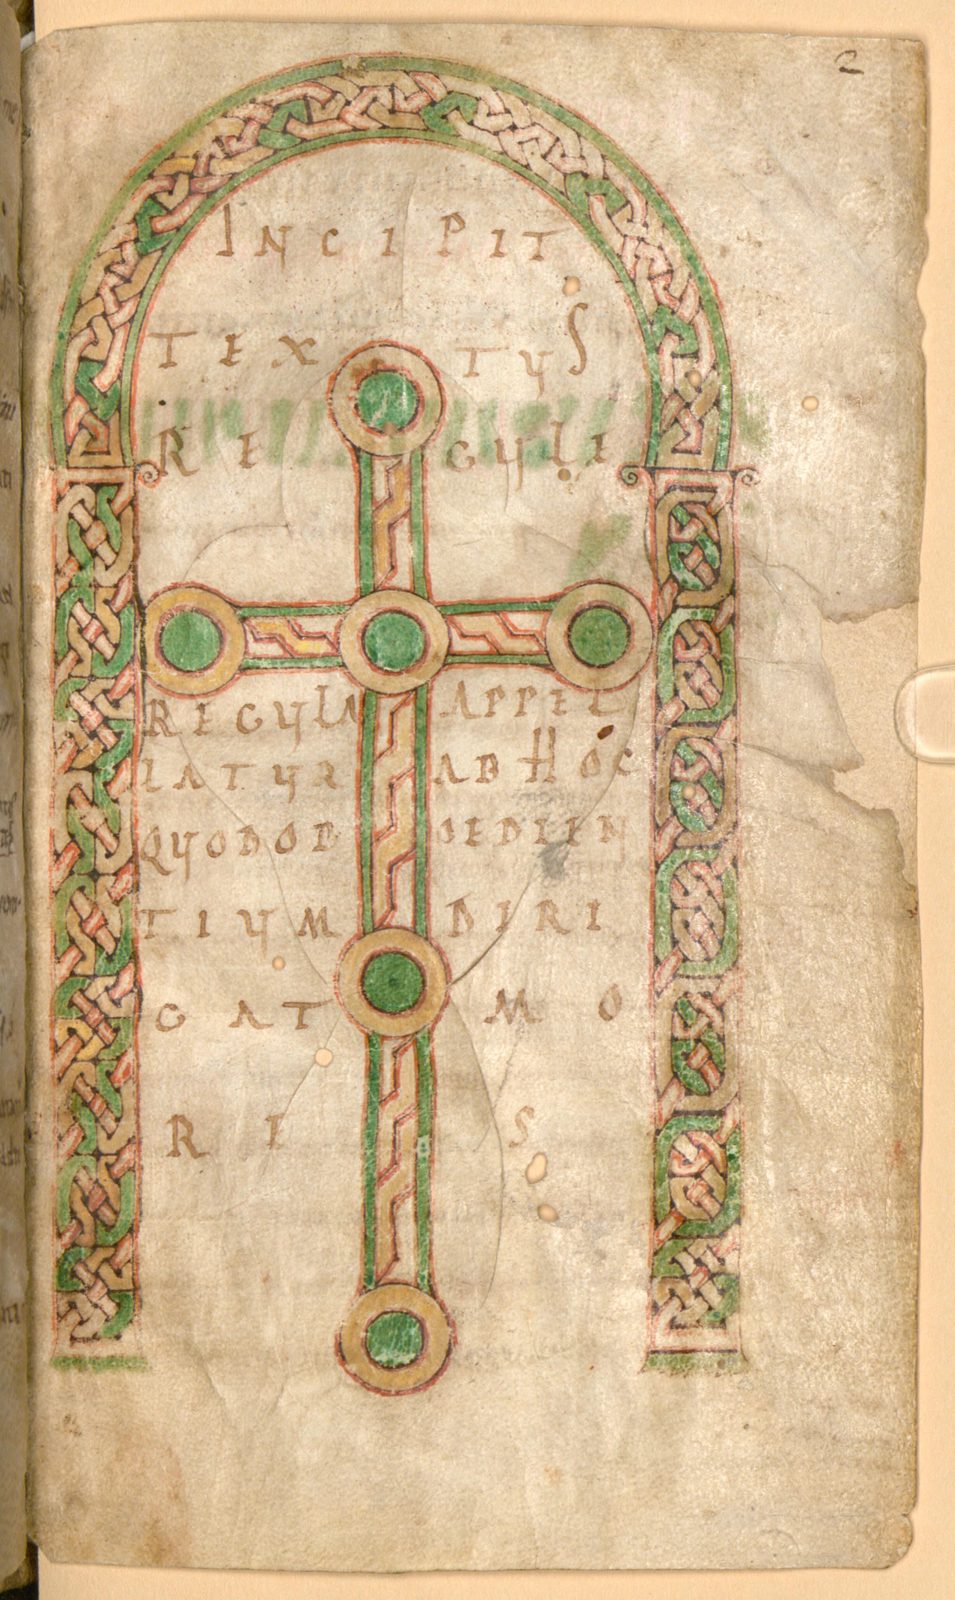 2
INCIPIT
TEXTUS
REGULE
REGULA APPEL
LATUR AB HOC
QUOD OBOEDIEN
TIUM DIRI
GAT MO
RES